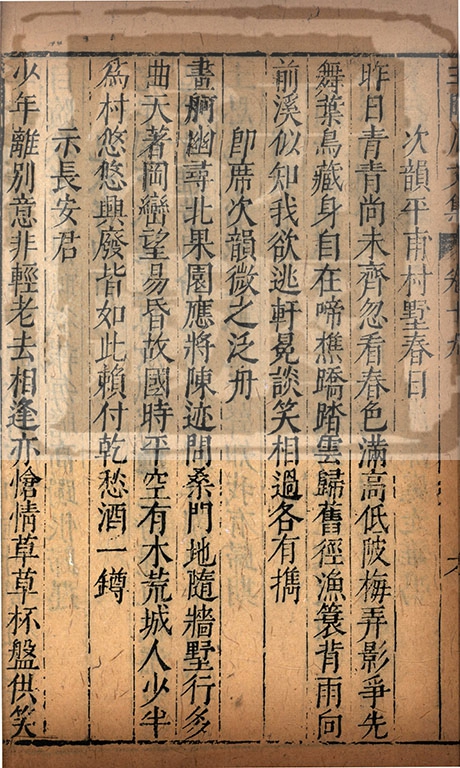 次韻平甫村墅春日
昨日青青尚未齊忽看春色滿高低陂梅弄影爭先
舞葉鳥藏身自在啼樵蹻踏雲歸舊徑漁簑背雨向
前溪似知我欲逃軒冕談笑相過各有攜
即席次韻微之泛舟
畫舸幽尋北果園應將陳迹問桑門地隨牆墅行多
曲天著岡巒望易昏故國時平空有木荒城人少半
爲村悠悠興廢皆如此賴付乾愁酒一鐏
示長安君
少年離別意非輕老去相逢亦愴情草草杯盤供笑